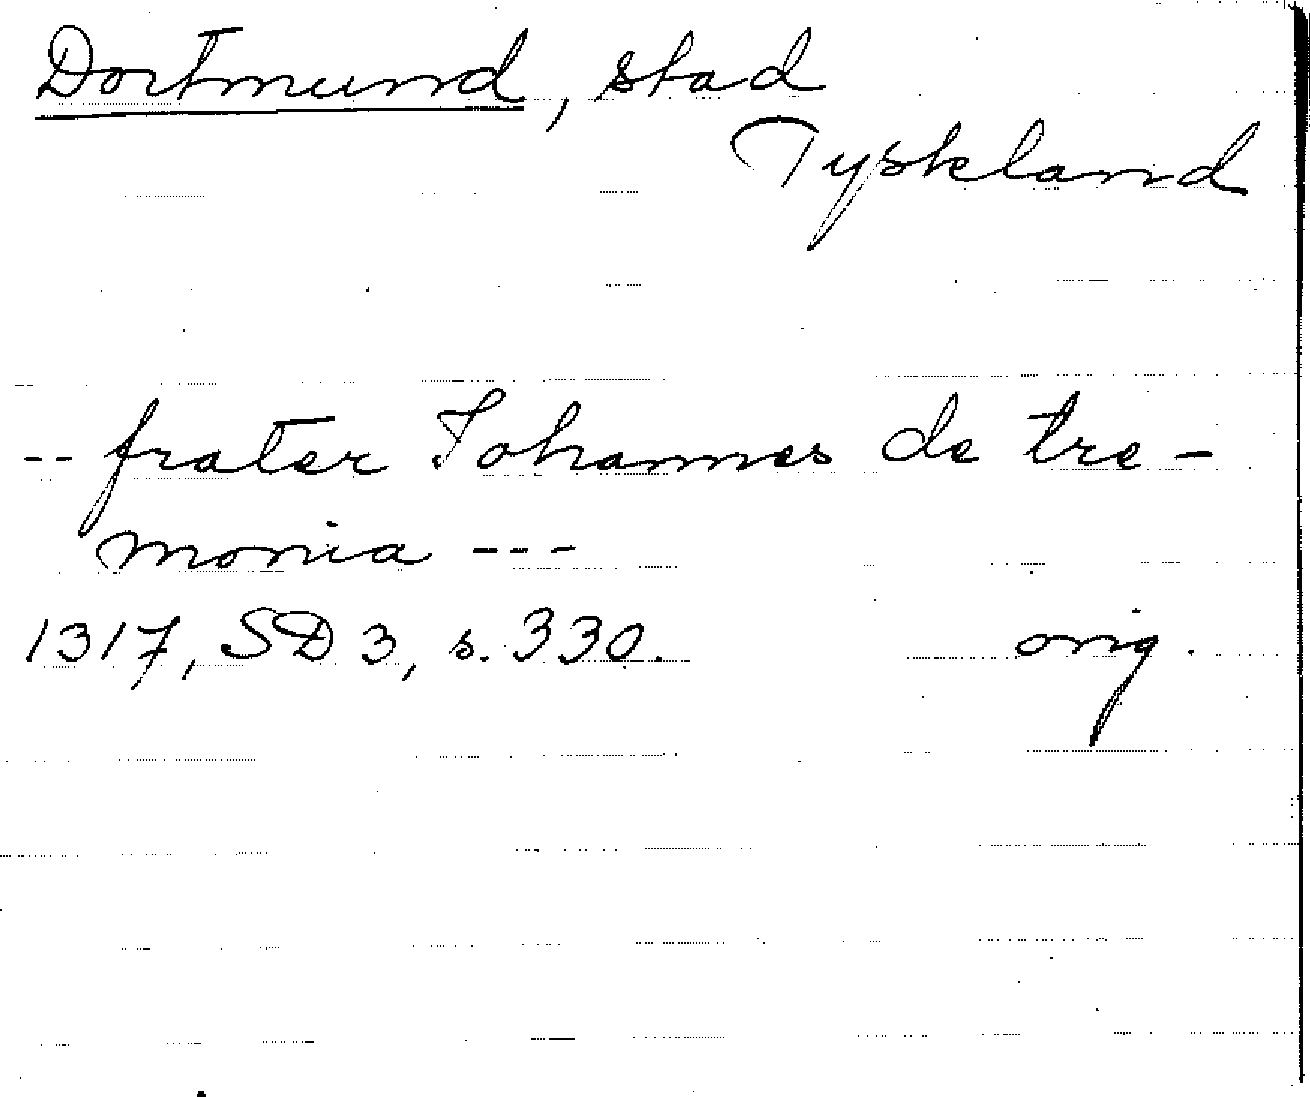 Dortmund, stad
Tyskland
-- frater Johannes de tre-
monia ---
1317, SD 3, s. 330. orig.